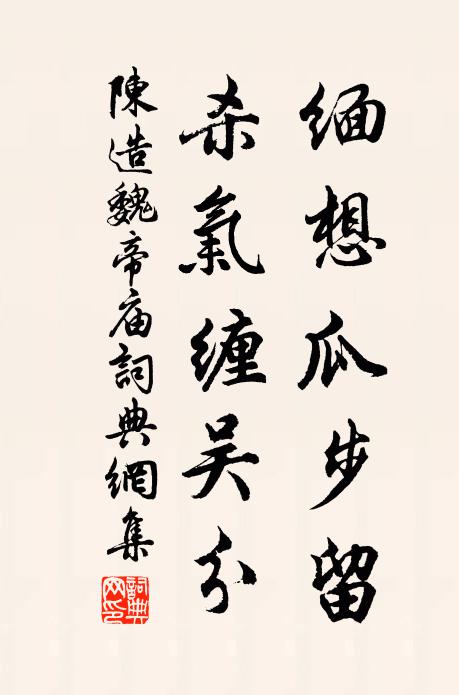 緬想瓜步留
杀氣缠吴分
陳造魏帝庙詞典網集
詞典网印